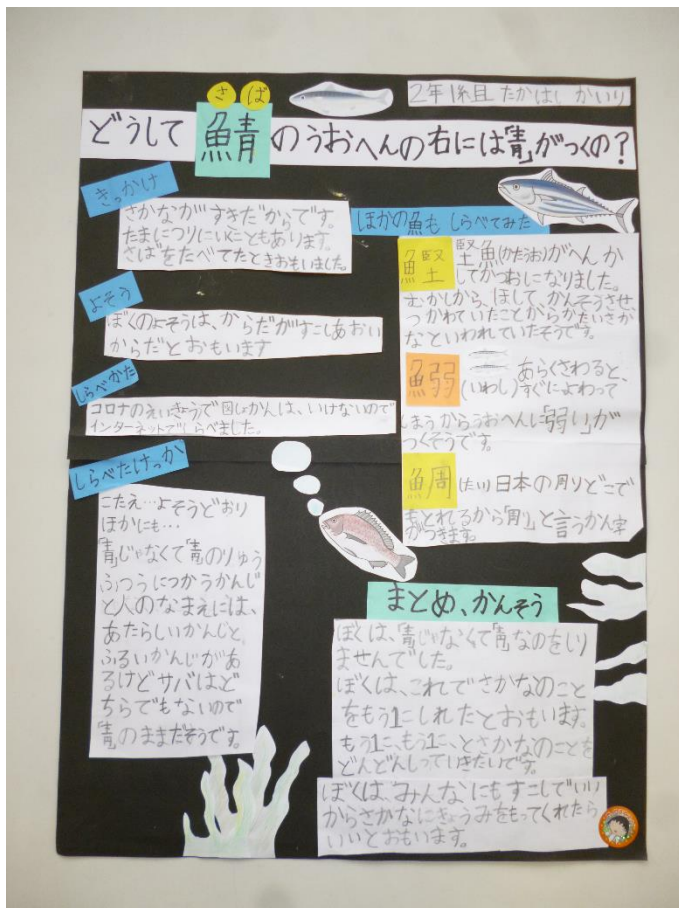 さば
2年1組 たかはし かいり
どうして鯖のうおへんの右には「靑」がつくの?
きっかけ
さかながすきだからです。
たまにつりにいくこともあります。
さばをたべてたときおもいました。
よそう
ぼくのよそうは、からだがすこしあおい
からだとおもいます
しらべかた
コロナのえいきょうで図しょかんは、いけないので
インターネットでしらべました。
しらべたけっか
こたえ…よそうどおり
ほかにも…
「青」じゃなくて「靑」のりゅう
ふつうにつかうかんじ
と人のなまえには、
あたらしいかんじと、
ふるいかんじがあ
るけどサバは、ど
ちらでもないので
「靑」のままだそうです。
ほかの魚もしらべてみた
鰹 堅魚(かたうお)がへんか
してかつおになりました。
むかしから、ほして、かんそうさせ
つかわれていたことからかたいさか
なといわれていたそうです。
鰯 あらくさわると、
(いわし)すぐによわって
しまうからうおへんに「弱い」が
つくそうです。
鯛 (たい)日本の周りどこで
もとれるから「周り」と言うかん字
がつきます。
まとめ、かんそう
ぼくは、「青」じゃなくて「靑」なのをしり
ませんでした。
ぼくは、これでさかなのこと
をもう1こしれたとおもいます。
もう1こ、もう1こ、とさかなのことを
どんどんしっていきたいです。
ぼくは、みんなにもすこしでいい
からさかなにきょうみをもってくれたら
いいとおもいます。